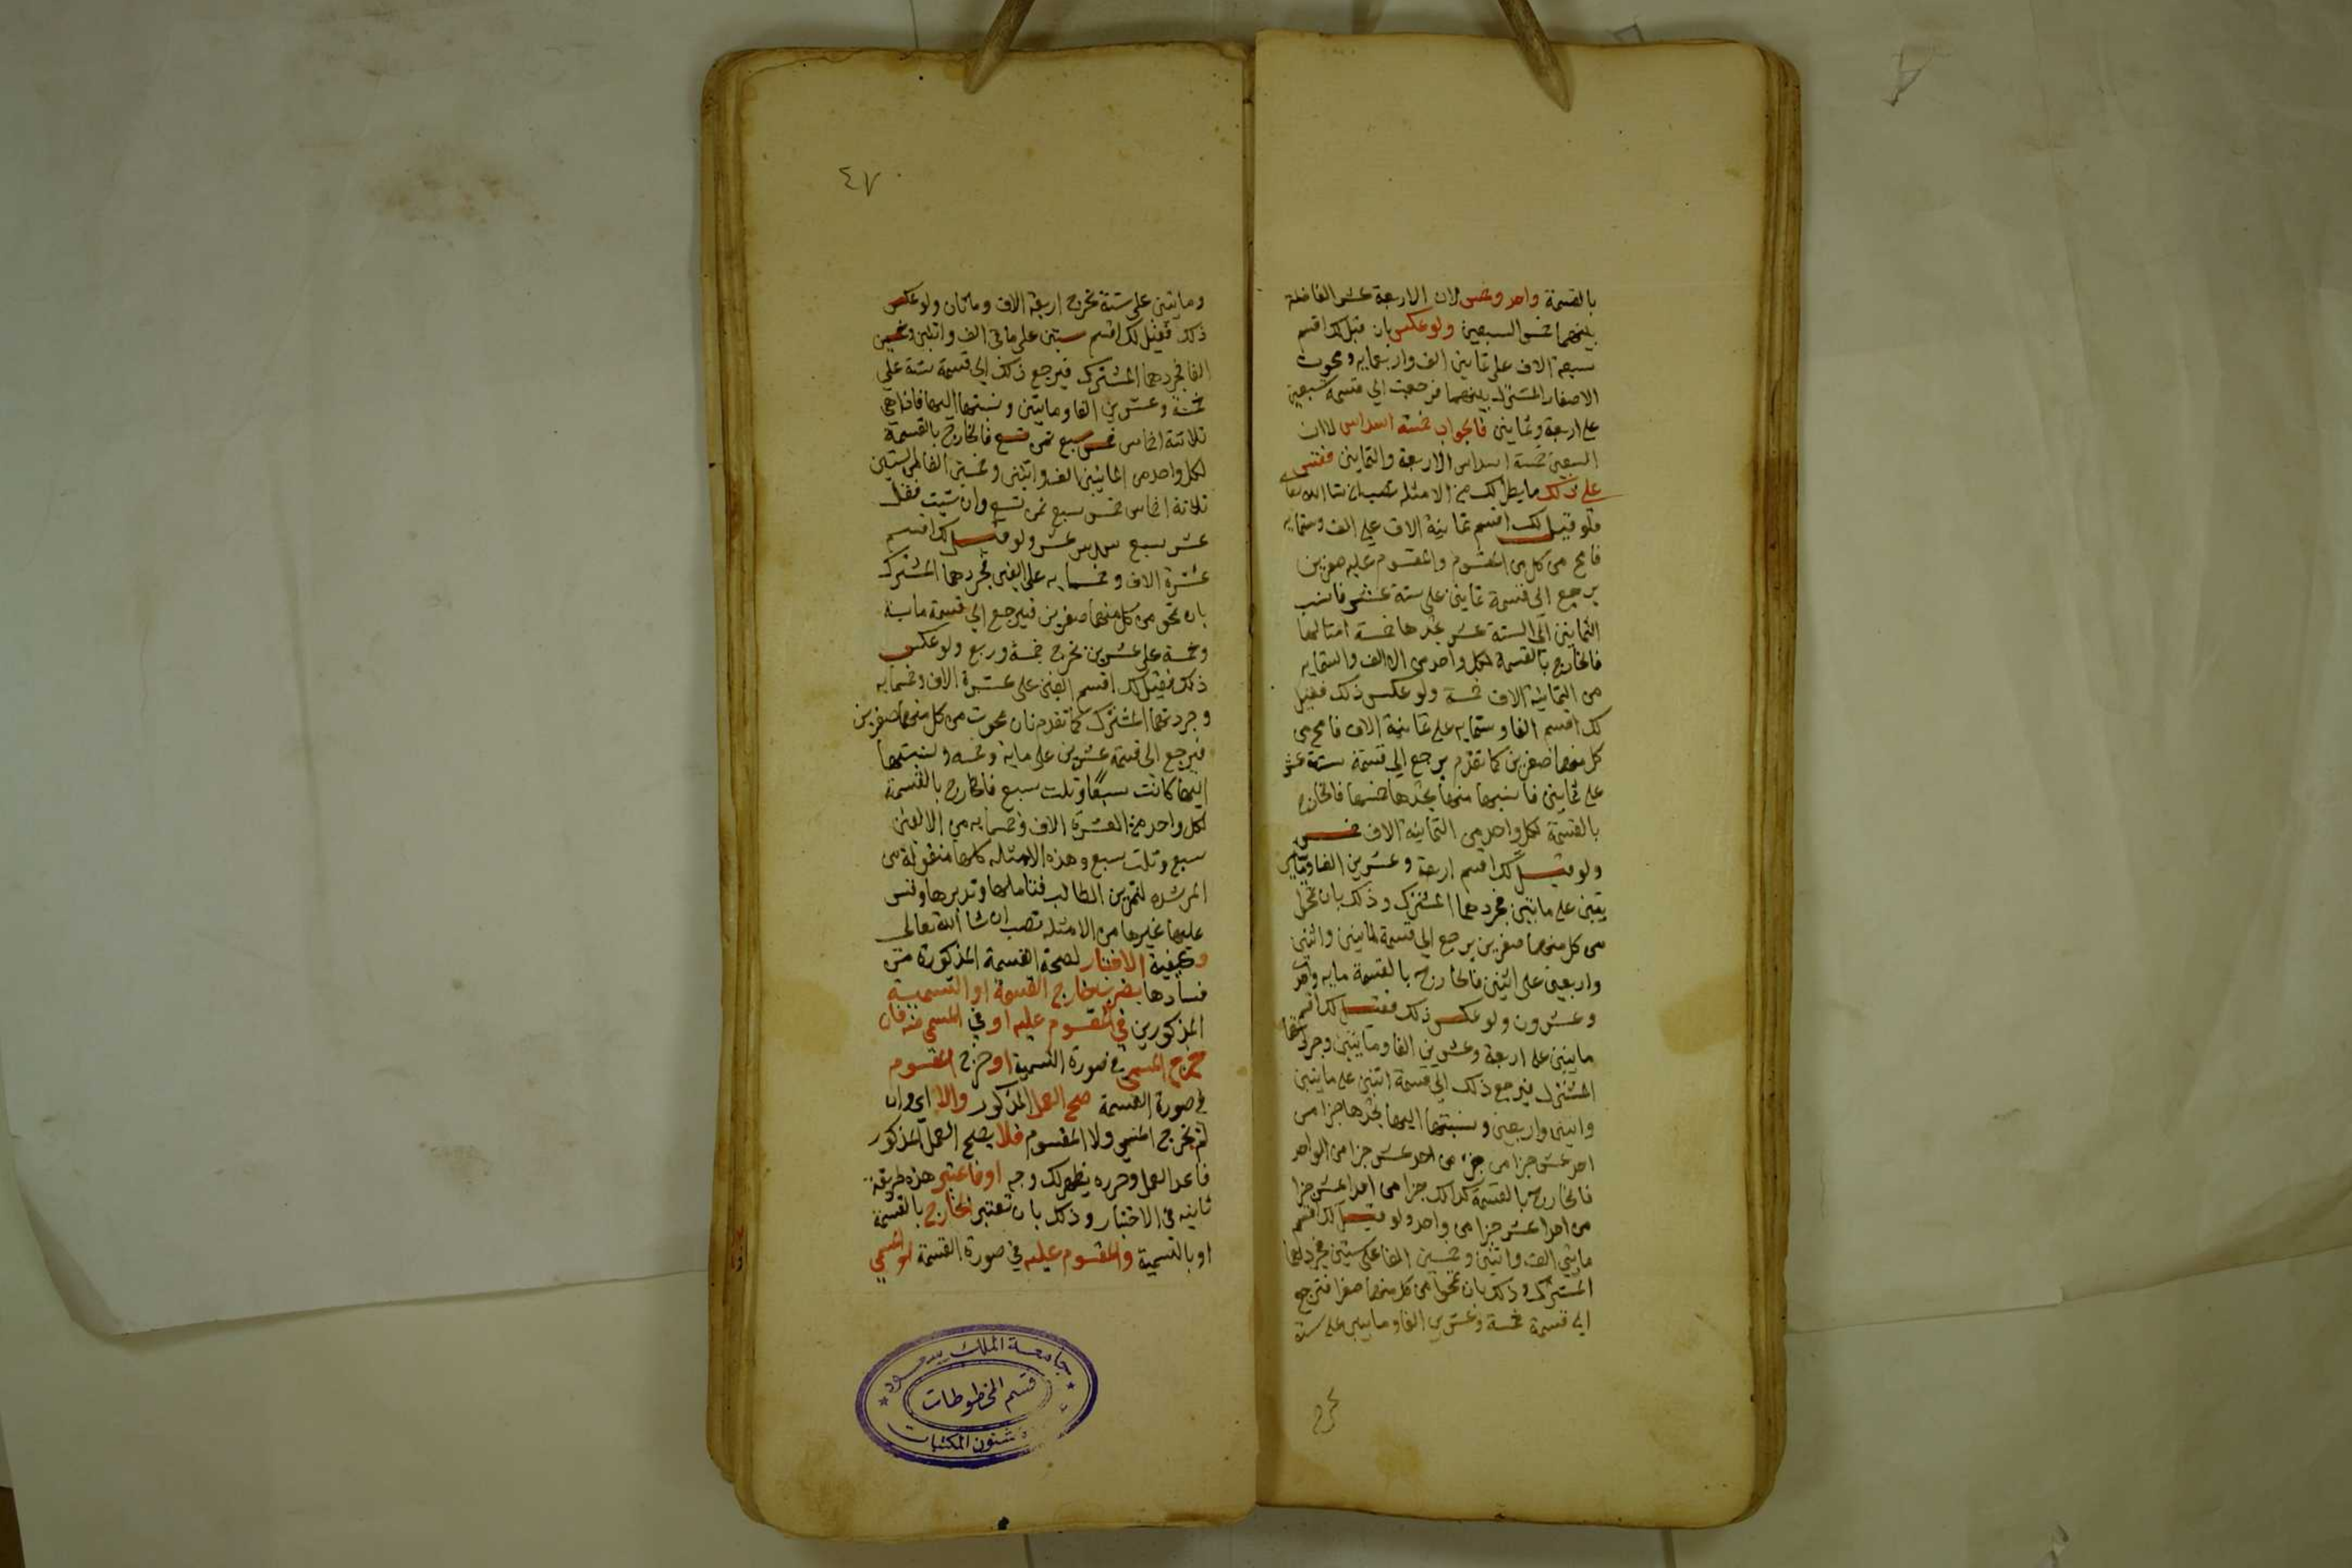 بالقسمة واحد وخمس لان الاربعة عشر الفاضلة
بينهما خمس السبعين ولو عكس بان قيل لك اقسم
سبعة الاف على ثمانين الف واربعمايه ومحوت
الاصفار المشترك بينهما فرجعت الي قسمة سبعين
على اربعة وثمانين فالجواب خمسة اسداس لان
السبعين خمسة اسداس الاربعة والثمانين فقس
على ذلك ما يطرا لك من الامثله تصب ان شا الله تعا
فلو قيل لك اقسم ثمانية الاف علي الف وستمايه
فامح من كل من المقسوم والمقسوم عليه صفرين
يرجع الى قسمة ثمانين على ستة عشر فانسب
الثمانين الى الستة عشر تجدها خمسة امثالها
فالخارج بالقسمة لكل واحد من الالف والستمايه
من الثمانية الاف خمسة ولو عكس ذلك فقيل
لك اقسم الفا وستمايه على ثمانية الاف فامح من
كل منهما صفرين كما تقدم يرجع الي قسمة ستة عشر
على ثمانين فانسبها منها تجدها خمسها فالخارج
بالقسمة لكل واحد من الثمانية الاف خمس
ولو قيل لك اقسم اربعة وعشرين الفا وماتين
يقين على ماتين فجردهما المشترك وذلك بان تمحى
من كل منهما صفرين يرجع الي قسمة ماتين واثنين
واربعين على اثنين فالخارج بالقسمة مايه واحد
وعشرون ولو عكس ذلك فقيل لك اقسم
ماتين على اربعة وعشرين الفا وماتين وجردتهما
المشترك فيرجع ذلك الي قسمة اثنين على ماتين
واثنين واربعين ونسبتها اليها تجدها جزا من
احد عشر جزا من جزء من احد عشر جزا من الواحد
فالخارج بالقسمة كذلك جزا من احد عشر جزا
من احد عشر جزا من واحد ولو قيل لك اقسم
مايتي الف واثنين وخمسين الفا على ستين فجردهما
المشترك وذلك بان تمحوا من كل منهما صفرا فترجع
الى قسمة خمسة وعشرين الفا وماتين على ستة
تخرج
٤٧
وماتين على ستة تخرج اربعة الاف وماتان ولو عكس
ذلك فقيل لك اقسم ستين على مايتي الف واثنين وخمسين
الفا فجردهما المشترك فيرجع ذلك الي قسمة ستة علي
خمسة وعشرين الفا وماتين ونسبتها اليها فاذا هي
ثلاثة اخماس خمس سبع ثمن تسع فالخارج بالقسمة
لكل واحد من المايتين الف واثنين وخمسين الفا من الستين
ثلاثة اخماس خمس سبع ثمن تسع وان شيت فقل
عشر سبع سدس عشر ولو قيل لك اقسم
عشرة الاف وخمسمايه على الفين فجردهما المشترك
بان تمحو من كل منهما صفرين فيرجع الي قسمة ماية
وخمسة على عشرين تخرج خمسة وربع ولو عكس
ذلك فقيل لك اقسم الفين على عشرة الاف وخمسمايه
وجردتهما المشترك كما تقدم بان محوت من كل منهما صفرين
فيرجع الى قسمة عشرين على ماية وخمسه ونسبتها
اليها كانت سبعا وثلث سبع فالخارج بالقسمة
لكل واحد من العشرة الاف وخمسمايه من الالفين
سبع وثلث سبع وهذه الامثله كلها منقولة من
المرشده لتمرين الطالب فتاملها وتدبرها وقس
عليها غيرها من الامثله تصب ان شا الله تعالى
وكيفية الاختبار لصحة القسمة المذكورة من
فسادها بضرب خارج القسمة او التسمية
المذكورين في المقسوم عليه او في المسمى منه فان
خرج المسمى في صورة التسمية او خرج المقسوم
في صورة القسمة صح العمل المذكور والا اي وان
لم يخرج المسمى ولا المقسوم فلا يصح العمل المذكور
فاعد العمل وحرره يظهر لك وجه او فاعتبر هذه طريقة
ثانيه في الاختبار وذلك بان تعتبر الخارج بالقسمة
او بالتسمية والمقسوم عليه في صورة القسمة او المسمى
جامعة الملك سعود
قسم المخطوطات
شئون المكتبات